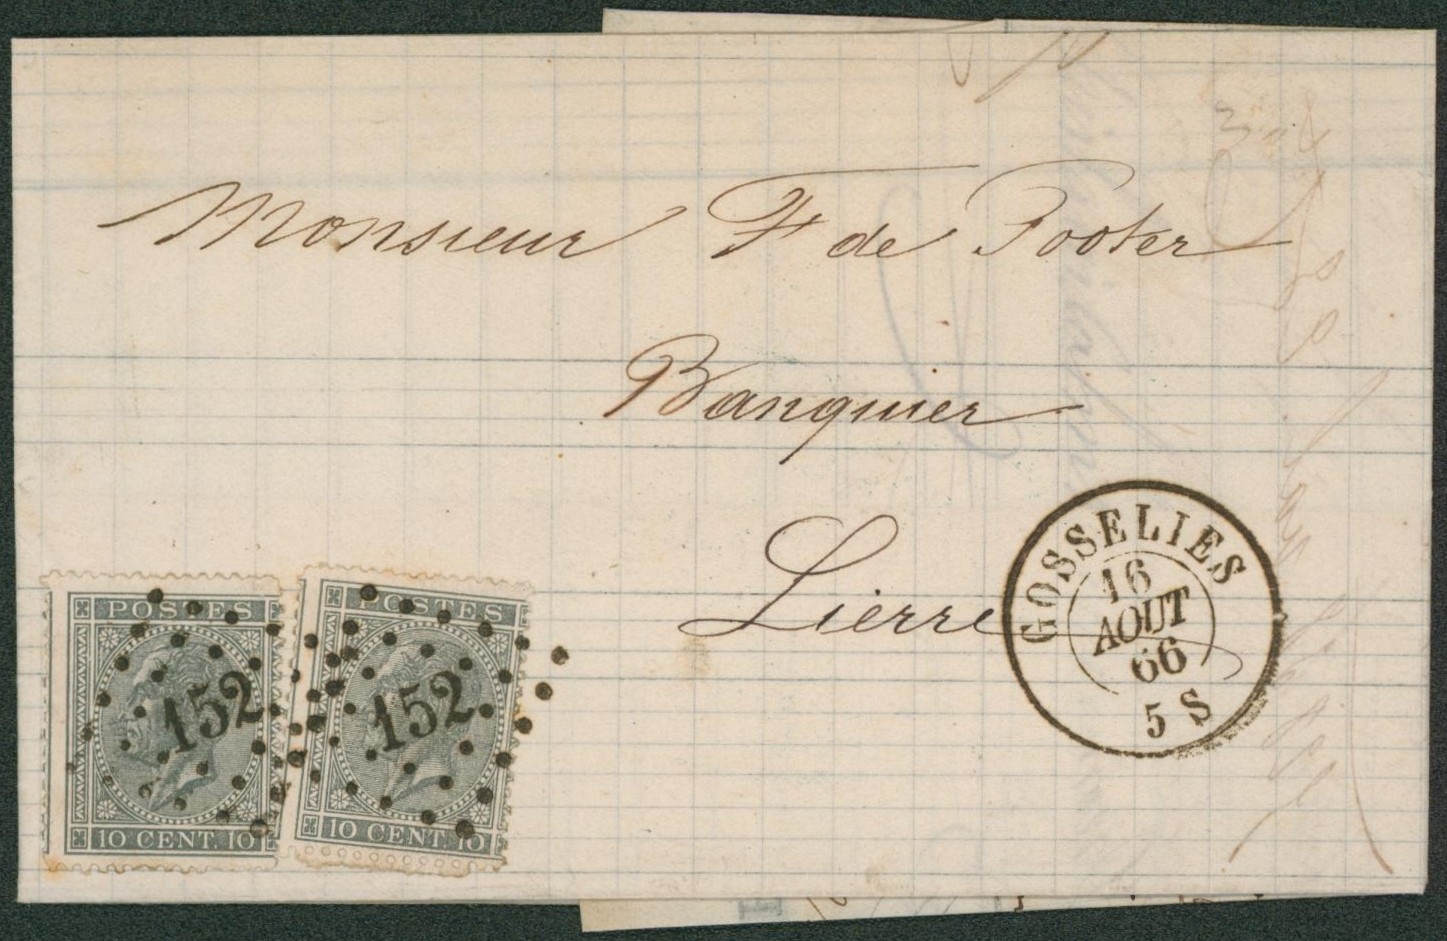 Monsieur F de Pooter
Banquier
Lierre
GOSSELIES
16
AOUT
66
5 S
POSTES
152
10 CENT. 10
POSTES
152
10 CENT. 10